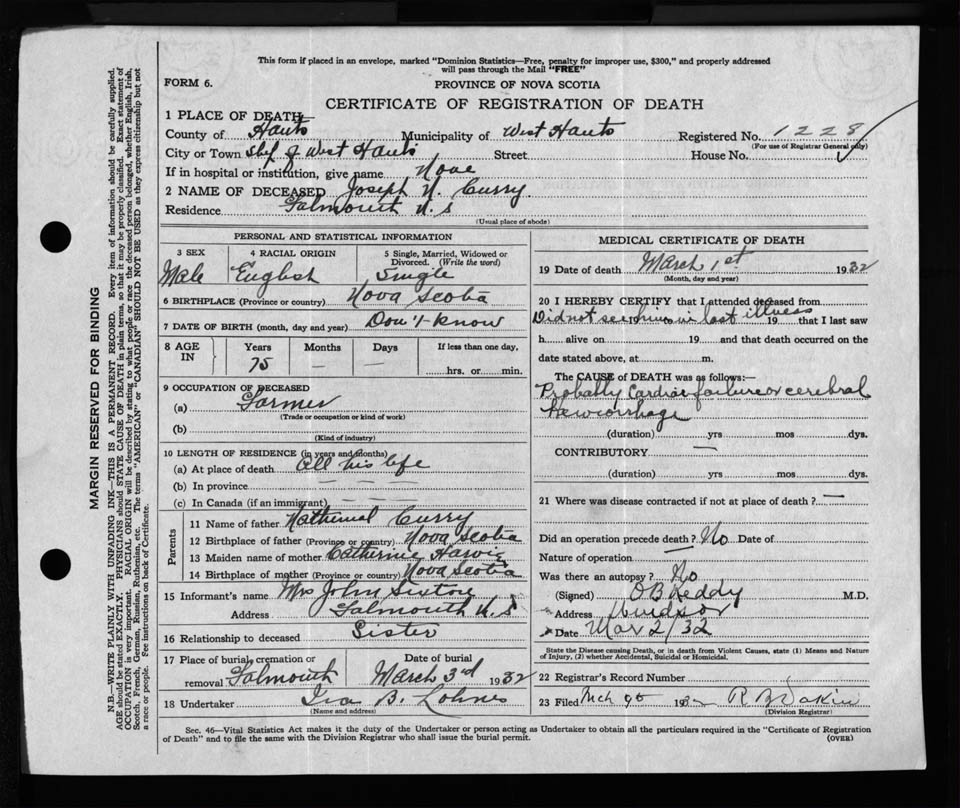 This form if placed in an envelope, marked "Dominion Statistics—Free, penalty for improper use, $300," and properly addressed
will pass through the Mail "FREE"
FORM 6.
PROVINCE OF NOVA SCOTIA
CERTIFICATE OF REGISTRATION OF DEATH
1 PLACE OF DEATH
County of Hants Municipality of West Hants Registered No. 1228
(For use of Registrar General only)
City or Town of West Hants Street House No.
If in hospital or institution, give name None
2 NAME OF DECEASED Joseph N. Curry
Residence Falmouth N.S
(Usual place of abode)
PERSONAL AND STATISTICAL INFORMATION
3 SEX Male
4 RACIAL ORIGIN English
5 Single, Married, Widowed or Divorced. (Write the word) Single
6 BIRTHPLACE (Province or country) Nova Scotia
7 DATE OF BIRTH (month, day and year) Don't know
8 AGE IN Years Months Days If less than one day,
75 — — hrs. or min.
9 OCCUPATION OF DECEASED
(a) Farmer
(Trade or occupation or kind of work)
(b)
(Kind of industry)
10 LENGTH OF RESIDENCE (in years and months)
(a) At place of death All his life
(b) In province — — —
(c) In Canada (if an immigrant) — — —
Parents
11 Name of father Curry
12 Birthplace of father (Province or country) Nova Scotia
13 Maiden name of mother Catherine
14 Birthplace of mother (Province or country) Nova Scotia
15 Informant's name Mrs John
Address Falmouth N.S
16 Relationship to deceased Sister
17 Place of burial, cremation or removal Falmouth
Date of burial March 3rd 1932
18 Undertaker Ira B. Lohnes
(Name and address)
MEDICAL CERTIFICATE OF DEATH
19 Date of death March 1st 1932
(Month, day and year)
20 I HEREBY CERTIFY that I attended deceased from
Did not see him in last illness 19 19 that I last saw
h alive on 19 and that death occurred on the
date stated above, at m.
The CAUSE of DEATH was as follows:—
Probably Cardiac failure or cerebral
Haemorrhage
(duration) yrs mos dys.
CONTRIBUTORY —
(duration) yrs mos dys.
21 Where was disease contracted if not at place of death? —
Did an operation precede death? No Date of
Nature of operation —
Was there an autopsy? No
(Signed) O B Keddy M.D.
Address Windsor
Date Mar 2/32
State the Disease causing Death, or in death from Violent Causes, state (1) Means and Nature
of Injury, (2) whether Accidental, Suicidal or Homicidal.
22 Registrar's Record Number
23 Filed Mch 1932 R B Dakin
(Division Registrar)
Sec. 46—Vital Statistics Act makes it the duty of the Undertaker or person acting as Undertaker to obtain all the particulars required in the "Certificate of Registration
of Death" and to file the same with the Division Registrar who shall issue the burial permit.
(OVER)
MARGIN RESERVED FOR BINDING
N.B.—WRITE PLAINLY WITH UNFADING INK—THIS IS A PERMANENT RECORD. Every item of information should be carefully supplied.
AGE should be stated EXACTLY. PHYSICIANS should STATE CAUSE OF DEATH in plain terms, so that it may be properly classified. Exact statement of
OCCUPATION is very important. RACIAL ORIGIN will be described by stating to what people or race the deceased person belonged, whether English, Irish,
Scotch, French, German, Russian, Ruthenian, etc. The terms "AMERICAN" or "CANADIAN" SHOULD NOT BE USED as they express citizenship but not
a race or people. See instructions on back of Certificate.